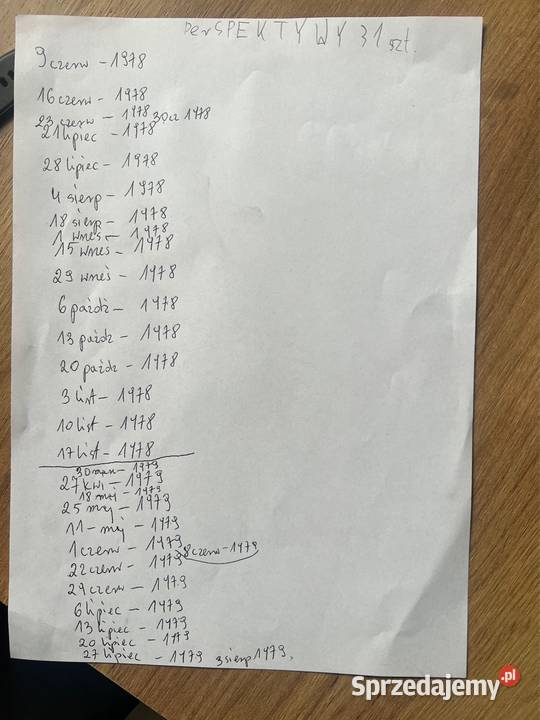 PerSPEKTYWY 31 szt.
9 czerw - 1978
16 czerw - 1978
23 czerw - 1978 30 cz 1978
21 lipiec - 1978
28 lipiec - 1978
4 sierp - 1978
18 sierp - 1978
1 wrześ - 1978
15 wrześ - 1978
29 wrześ - 1978
6 paźdź - 1978
13 paźdz - 1978
20 paźdz - 1978
3 list - 1978
10 list - 1978
17 list - 1978
30 marz - 1979
27 kwi - 1979
18 maj - 1979
25 maj - 1979
11 - maj - 1979
1 czerw - 1979
8 czerw - 1979
22 czerw - 1979
29 czerw - 1979
6 lipiec - 1979
13 lipiec - 1979
20 lipiec - 1979
27 lipiec - 1979 3 sierp 1979.
Sprzedajemy.pl